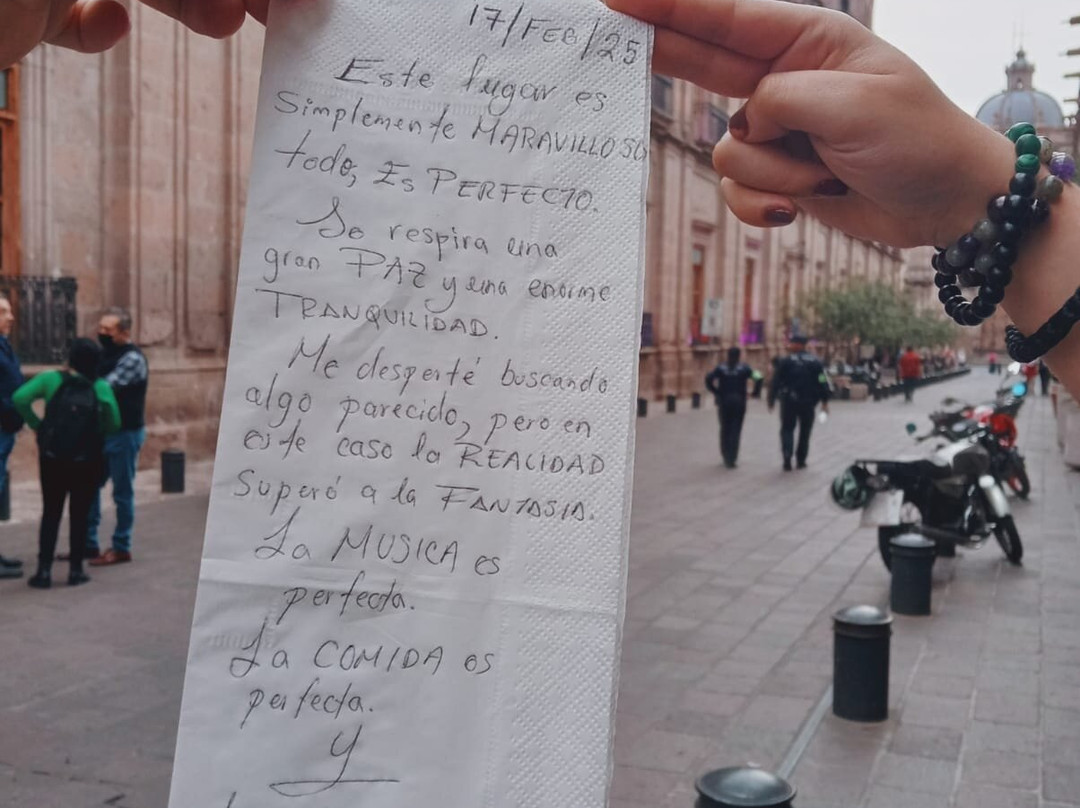 17/FEB/25
Este lugar es
Simplemente MARAVILLOSO
todo, Es PERFECTO.
Se respira una
gran PAZ y una enorme
TRANQUILIDAD.
Me desperté buscando
algo parecido, pero en
este caso la REALIDAD
Superó a la FANTASIA.
La MUSICA es
perfecta.
La COMIDA es
perfecta.
Y